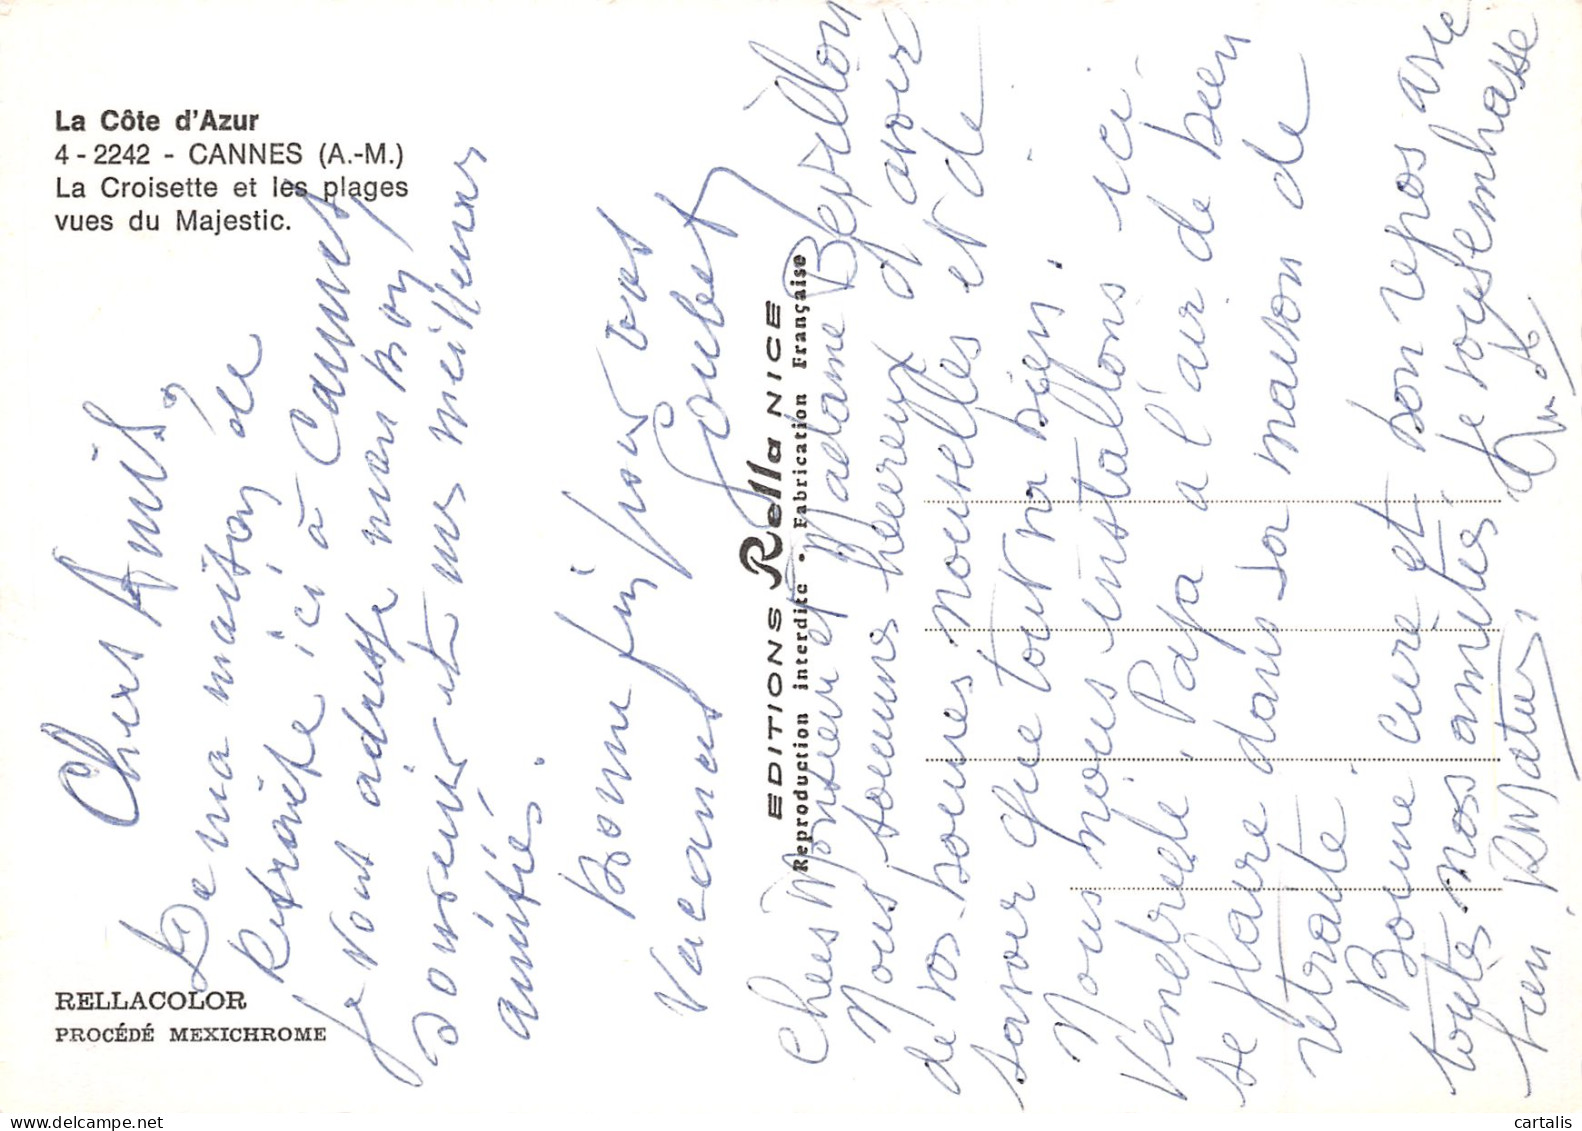 La Côte d'Azur
4-2242 - CANNES (A.-M.)
La Croisette et les plages
vues du Majestic.
Chers Amis,
De ma maison de
Retraite ici à Cannes
je vous adresse mon bon
souvenir et mes meilleures
amitiés.
Bonne fin pour vos
vacances
EDITIONS Rella NICE
Reproduction interdite • Fabrication Française
Chers Monsieur et Madame
Nous sommes heureux d'avoir
de vos bonnes nouvelles et de
savoir que tout va bien.
Nous nous installons ici
Vendredi. Papa a l'air de bien
se plaire dans sa maison de
retraite.
Bonne cure et bon repos avec
toutes nos amitiés. Je vous embrasse
bien.
RELLACOLOR
PROCÉDÉ MEXICHROME
cartalis